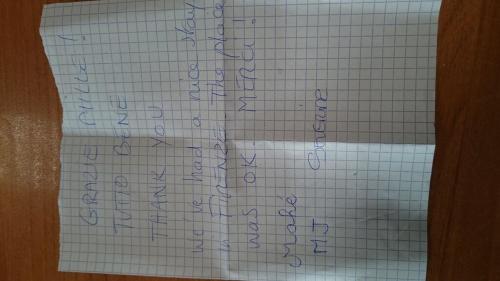 GRAZIE MILLE!
TUTTO BENE
THANK YOU
we've had a nice stay
in FIRENZE. The place
was OK. MERCI!
MJ